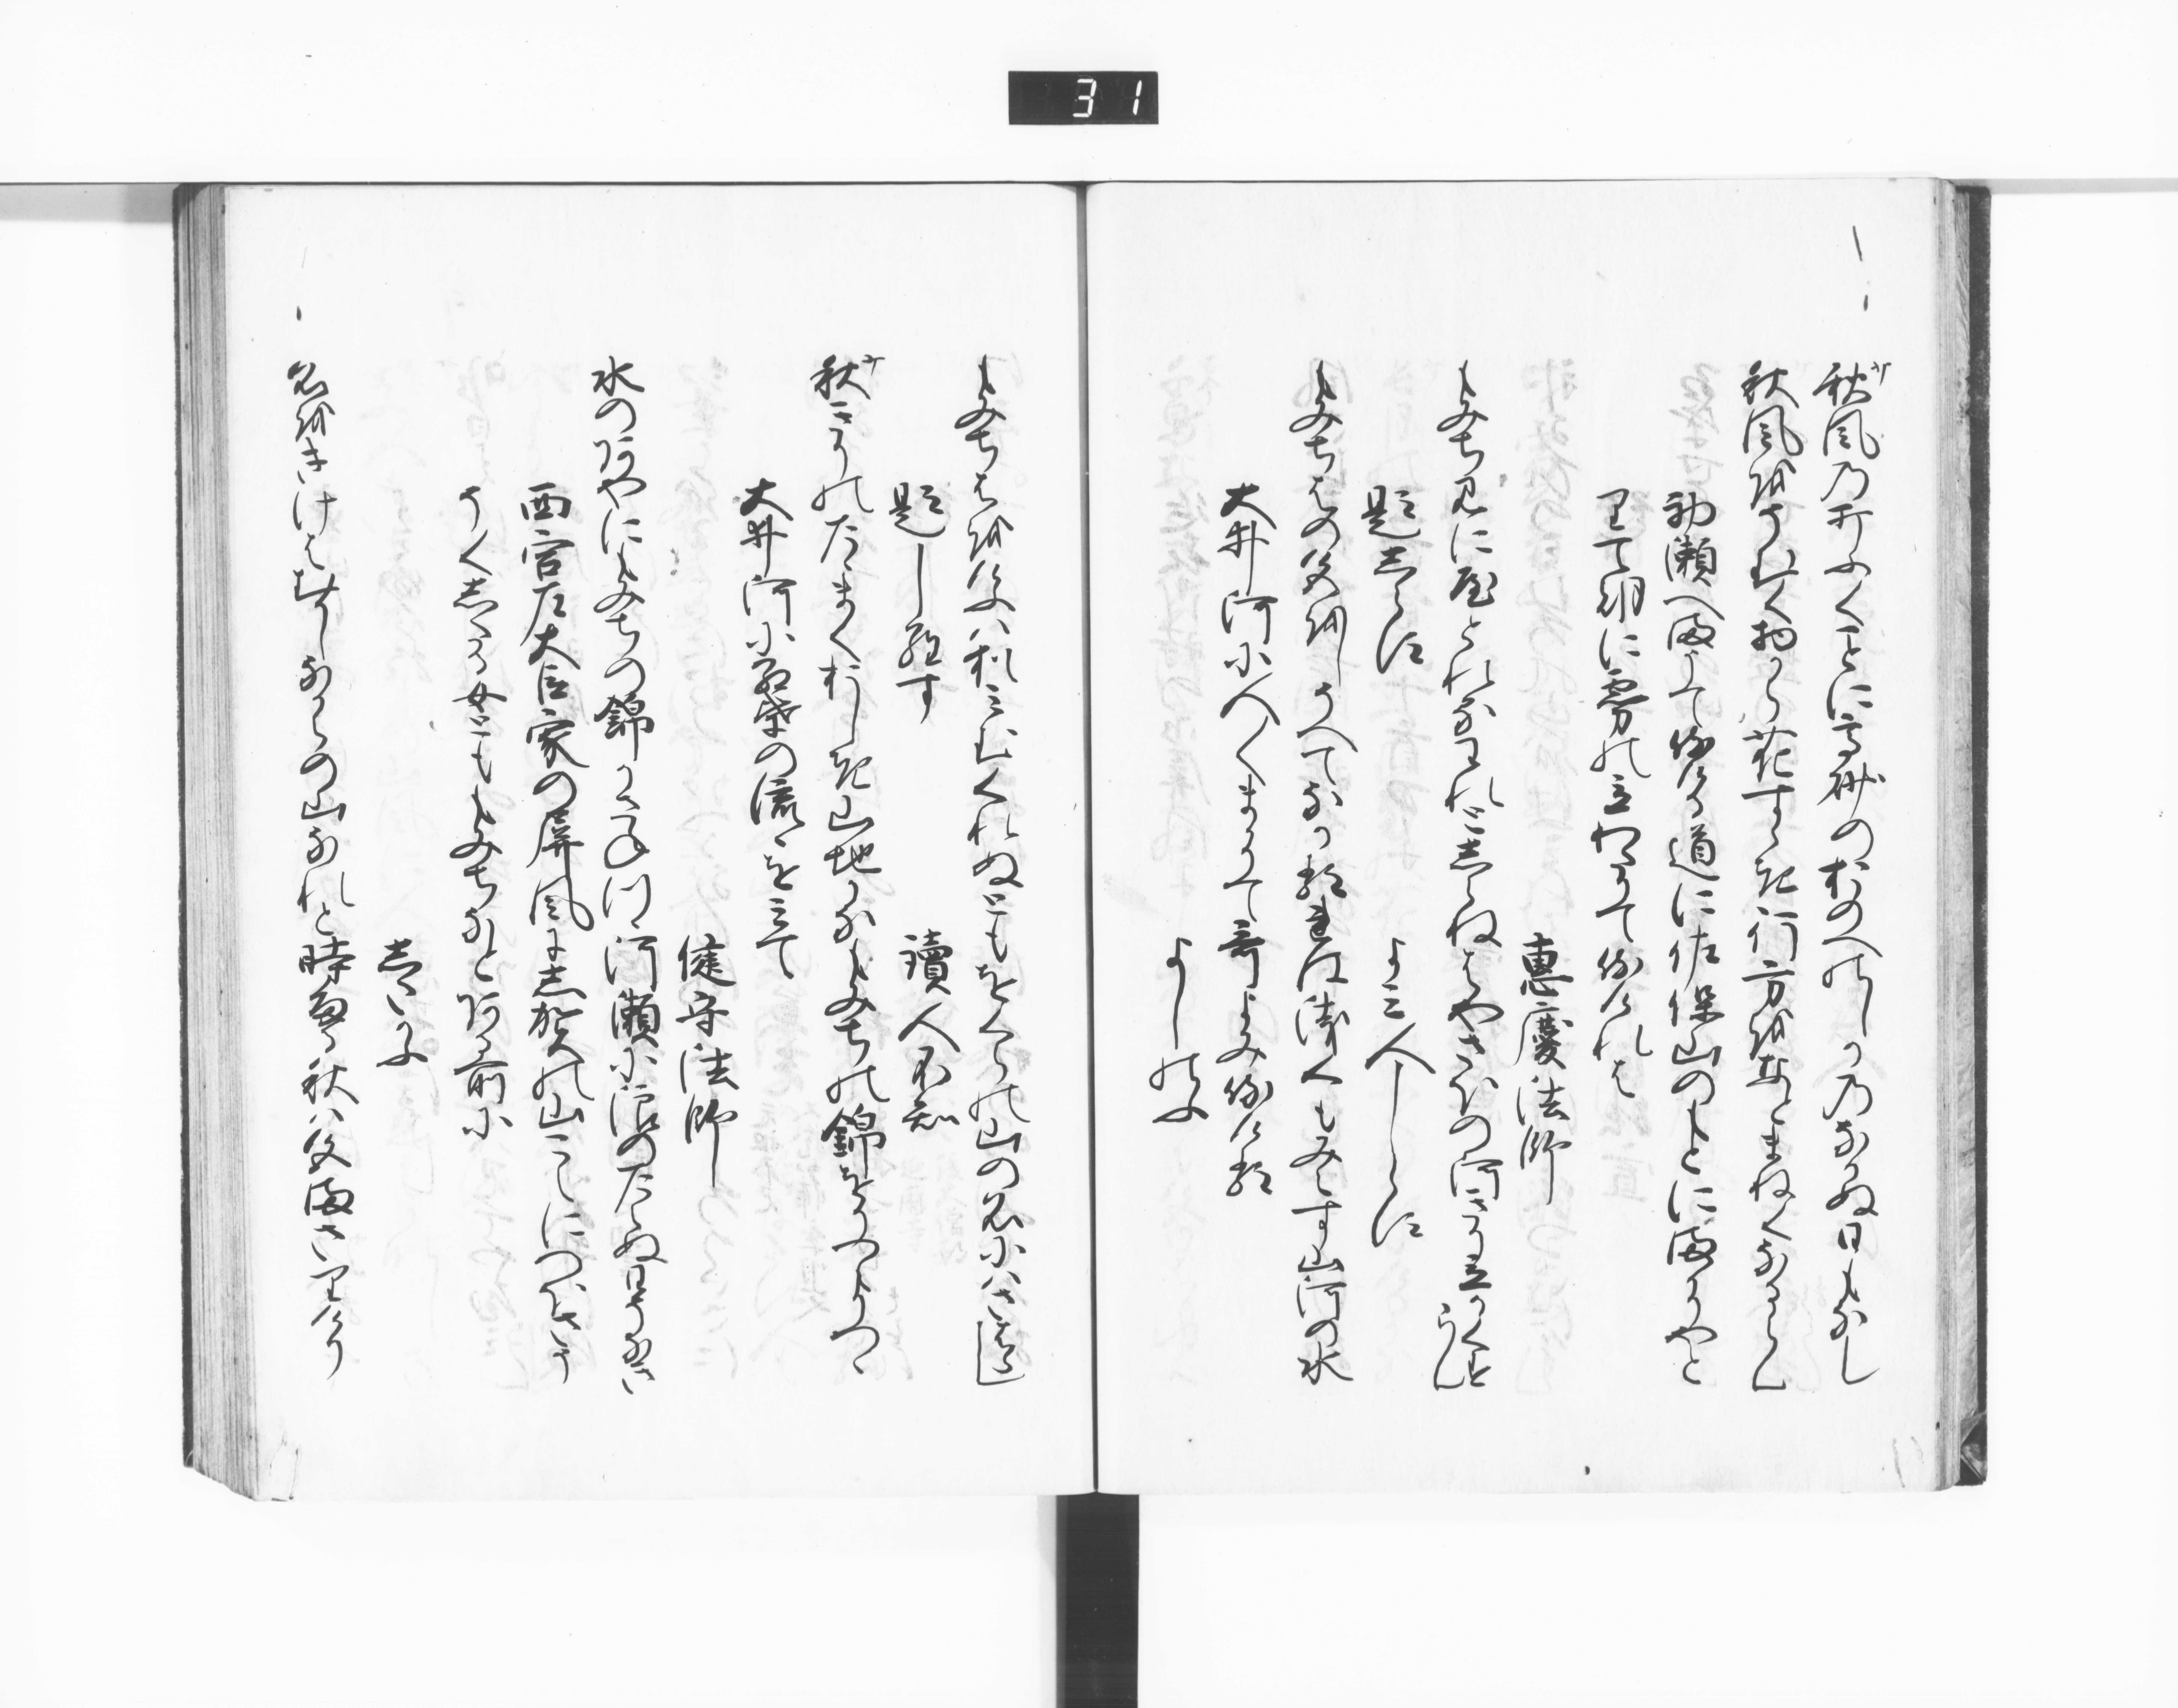 31
秋風の打ふくことに高砂のおのへのしかのなかぬ日そなき
秋風をそむく物から花すゝき行方をなとまねくなるらん
初瀬へまうて侍ける道に佐保山のもとにまかりやと
りて朝に霧の立わたりて侍けれは
恵慶法師
もみち見に宿とれるわれとしらねはやさほの河きり立かくすらん
題しらす
よみ人しらす
もみちはの色をしそへてなかるれは浅くもみえす山河の水
大井河に人〱まかりて哥よみ侍ける
よしのふ
もみちはをけふは猶みむくれぬともをくらの山の名にはさはらし
題しらす
読人不知
秋きりのたゝまくおしき山地かなもみちの錦をりつもりつゝ
大井河に紅葉の流るゝを見て
健守法師
水のあやにもみちの錦かさねつゝ河瀬に浪のたゝぬ日そなき
西宮左大臣家の屏風にしかの山こえにつほさう
そくしたる女とももみちなとある前に
したかふ
名をきけは昔なからの山なれと時雨る秋は色まさりけり